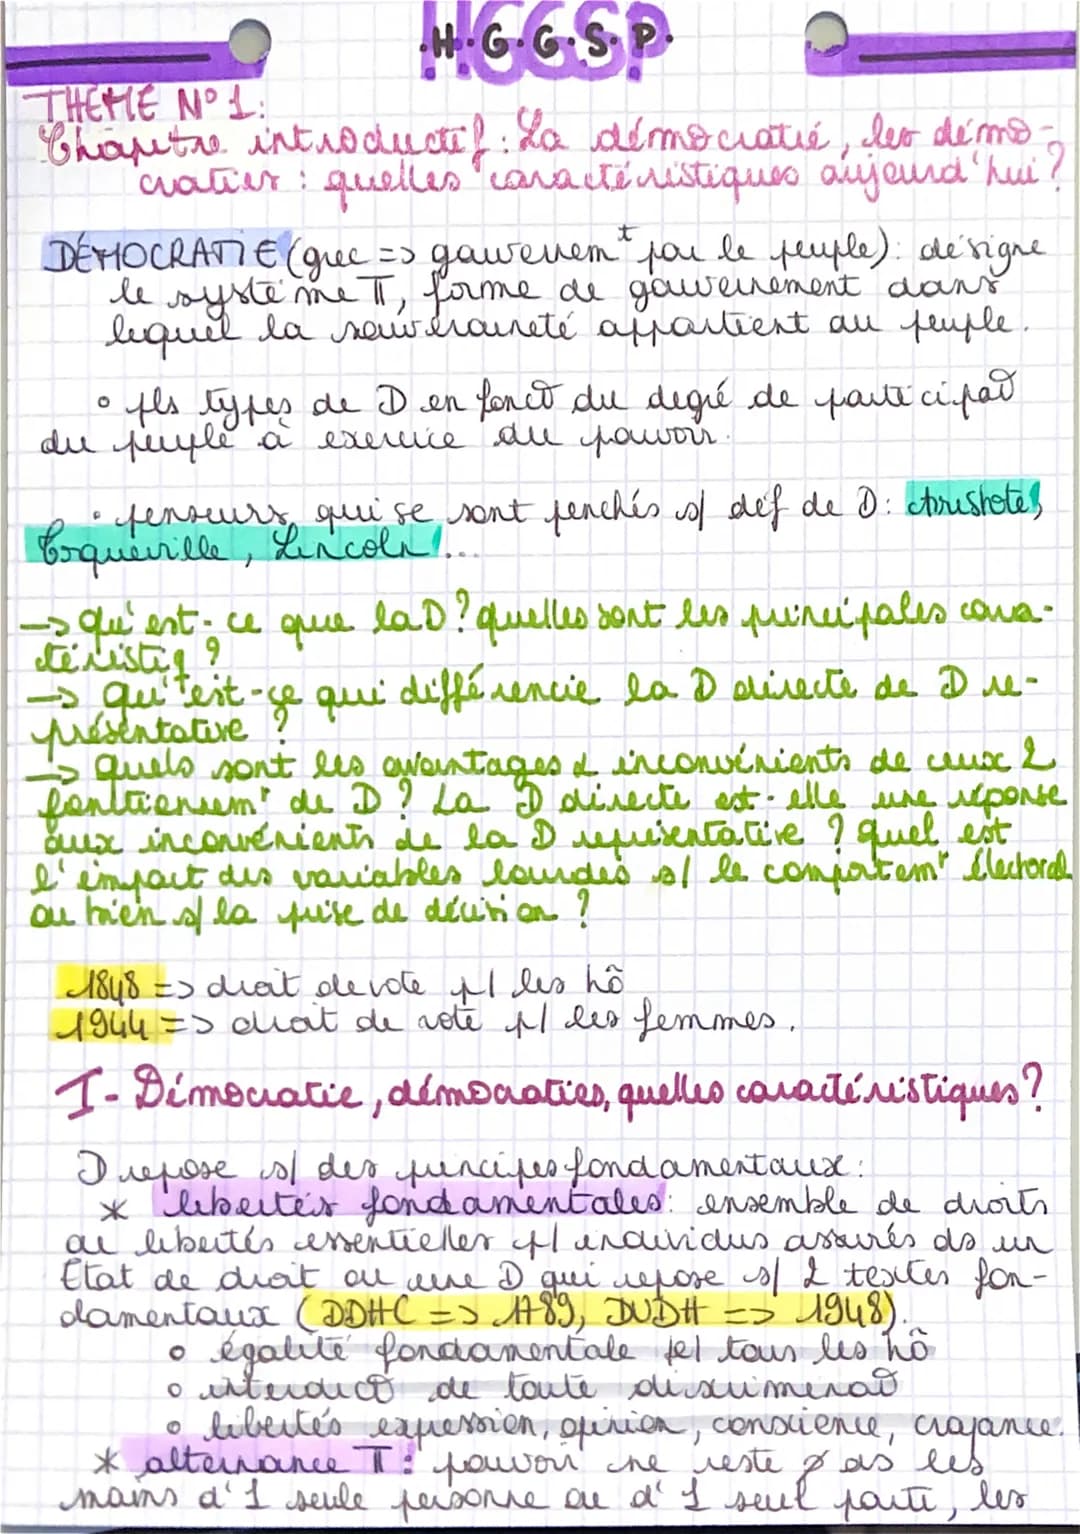 H.G.G.S.P.
THÈME N° 1:
Chapitre introductif : La démocratie, les démo-
craties : quelles caractéristiques aujourd'hui ?
DÉMOCRATIE (grec => gouvernemt par le peuple): désigne
le système π, forme de gouvernement dans
lequel la souveraineté appartient au peuple.
° pls types de D en fonct° du degré de participat°
du peuple à exercice du pouvoir.
• penseurs qui se sont penchés s/ déf de D: Aristote,
Toqueville, Lincoln...
→ qu'est-ce que la D? quelles sont les principales cara-
téristiq ?
→ qu'est-ce qui différencie la D directe de D re-
présentative ?
→ quels sont les avantages & inconvénients de ceux 2
fonctionnemt de D ? La D directe est-elle une réponse
aux inconvénients de la D représentative ? quel est
l'impact des variables lourdes s/ le comportemt électoral
ou bien s/ la prise de décision ?
1848 => droit de vote p/ les hô
1944 => droit de vote p/ les femmes.
I- Démocratie, démocraties, quelles caractéristiques ?
D repose s/ des principes fondamentaux:
* libertés fondamentales: ensemble de droits
de libertés essentielles p/ individus assurés ds un
État de droit ou une D qui repose s/ 2 textes fon-
damentaux (DDHC => 1789, DUDH => 1948).
° égalité fondamentale pr/ tous les hô
° interdict° de toute discriminat°
° libertés expression, opinion, conscience, croyance.
* alternance π: pouvoir ne reste ø ds les
mains d'1 seule personne ou d'1 seul parti, les